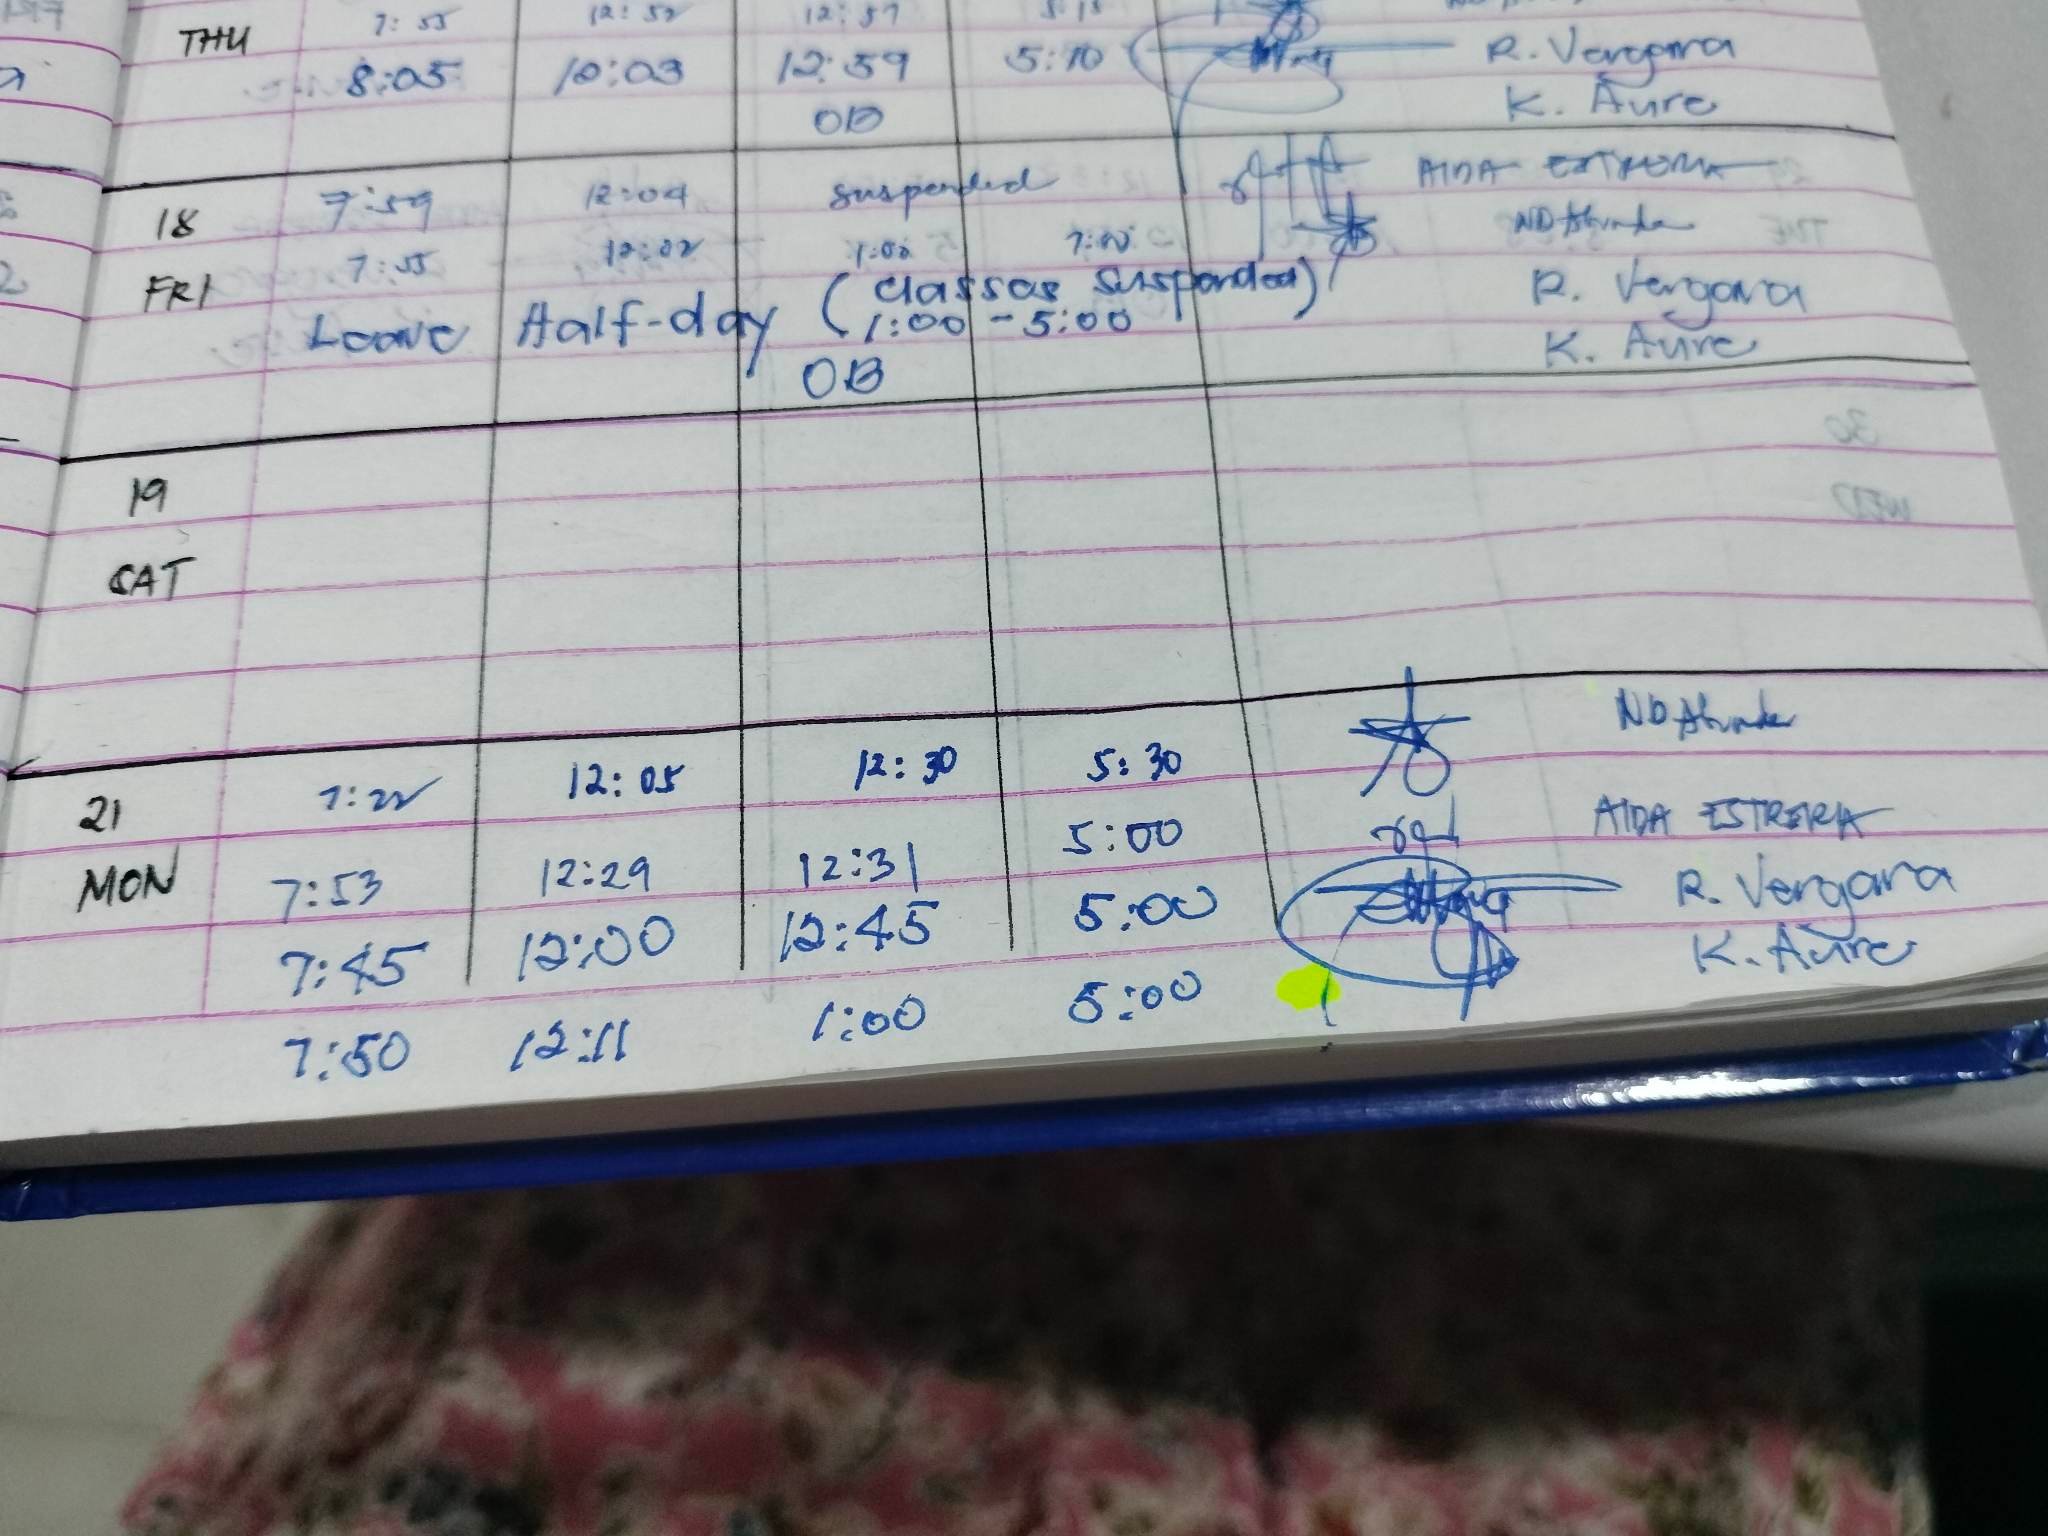 THU 7:55 12:57
8:05 12:03 12:59 5:10 R. Vergara
OB K. Aure
18 7:59 12:04 suspended AIDA ESTRERA
FRI 7:55 12:02 1:00 7:00
Leave Half-day (Classes Suspended)
1:00 - 5:00 R. Vergara
OB K. Aure
19
SAT
21 7:22 12:05 12:30 5:30
MON 7:53 12:29 12:31 5:00 AIDA ESTRERA
7:45 12:00 12:45 5:00 R. Vergara
7:50 12:11 1:00 5:00 K. Aure